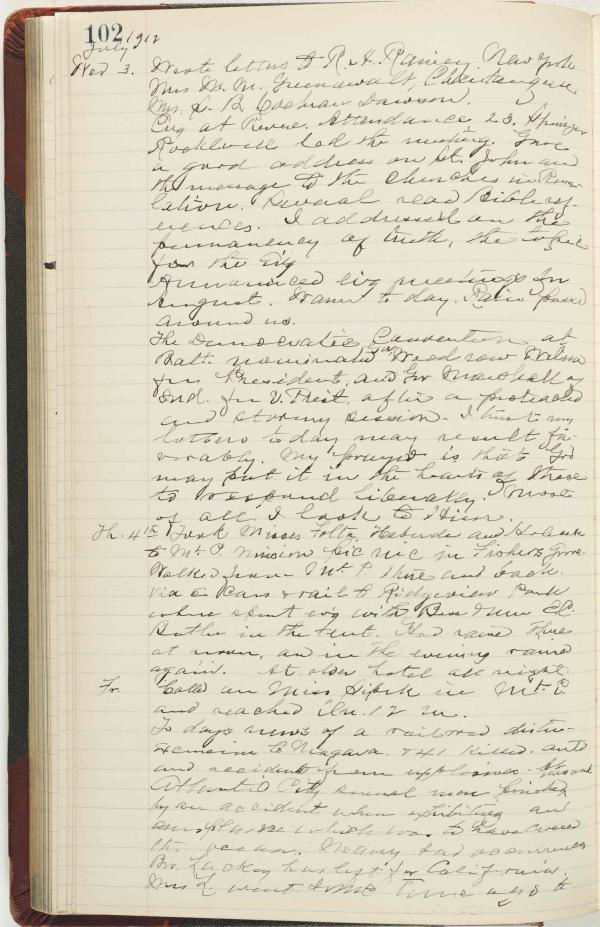 102
July 1912
Wed 3. Wrote letters to R. H. Ramsey. New York
Mrs. M. M. Greenawalt, Chautauqua,
Mrs. A. B. Cochran Dawson.
Evg at Revere. Attendance 23.
led the meeting. Gave
a good address on St. John and
the message to the churches in Reve-
lation. Several read Bible ref-
erences. I addressed on the
permanency of truth, the topic
for the Evg
Announced evg meetings in
August. Warm to day. Rain passed
around us.
The Democratic Convention at
Balt. nominated Gov Woodrow Wilson
for President, and Gov Marshall of
Ind. for V. Prest. after a protracted
and stormy session. I trust my
letters to day may result fa-
vorably. My prayer is that God
may put it in the hearts of those
to respond liberally. Most
of all I look to Him.
Th. 4th Took Misses and
to Mt. P. Mission picnic in Grove.
Walked from Mt. P. there and back.
Via E Cars & rail to Ridgeview Park
where spent evg with Bess & Mrs E.C.
Butler in the tent. Had rained there
at noon, and in the evening rained
again. At hotel all night.
Fr. Called on Miss in Mt. P.
and reached 12 m.
To days news of a railroad
excursion to Niagara. & 41 killed. auto
and accidents from explosives. At
Atlantic City several men
by an accident when exhibiting and
aeroplane which was to have crossed
the ocean. Many sad occurrences
Bro. Lackey has left for California.
Mrs L. went some time ago to